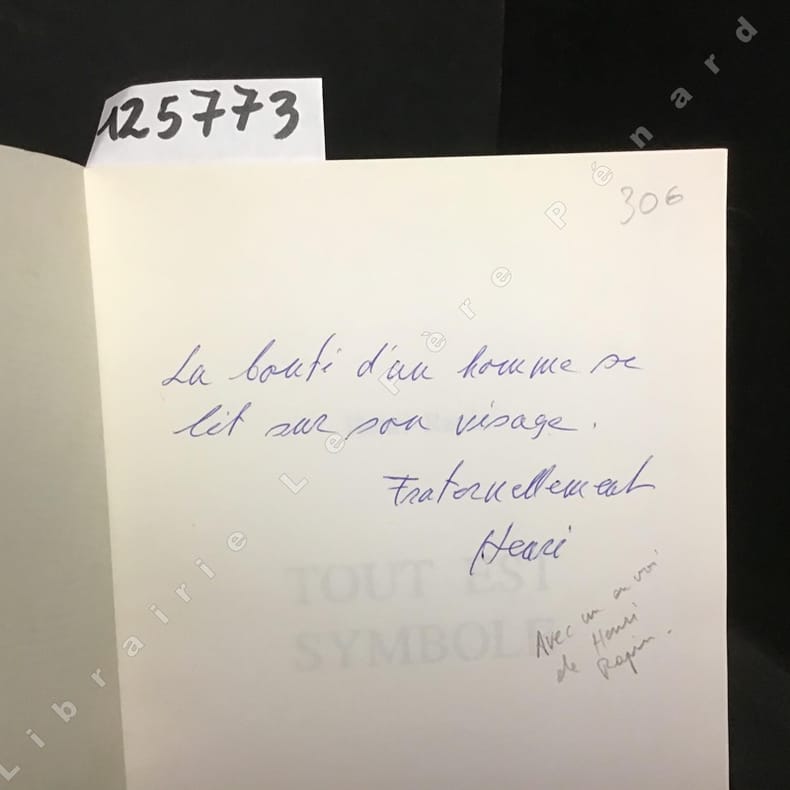 125773
306
La bonté d'un homme se
lit sur son visage.
Fraternellement
Henri
TOUT EST
SYMBOLE
Avec un envoi
de Henri
Rapin.
Librairie Le Père Pénard